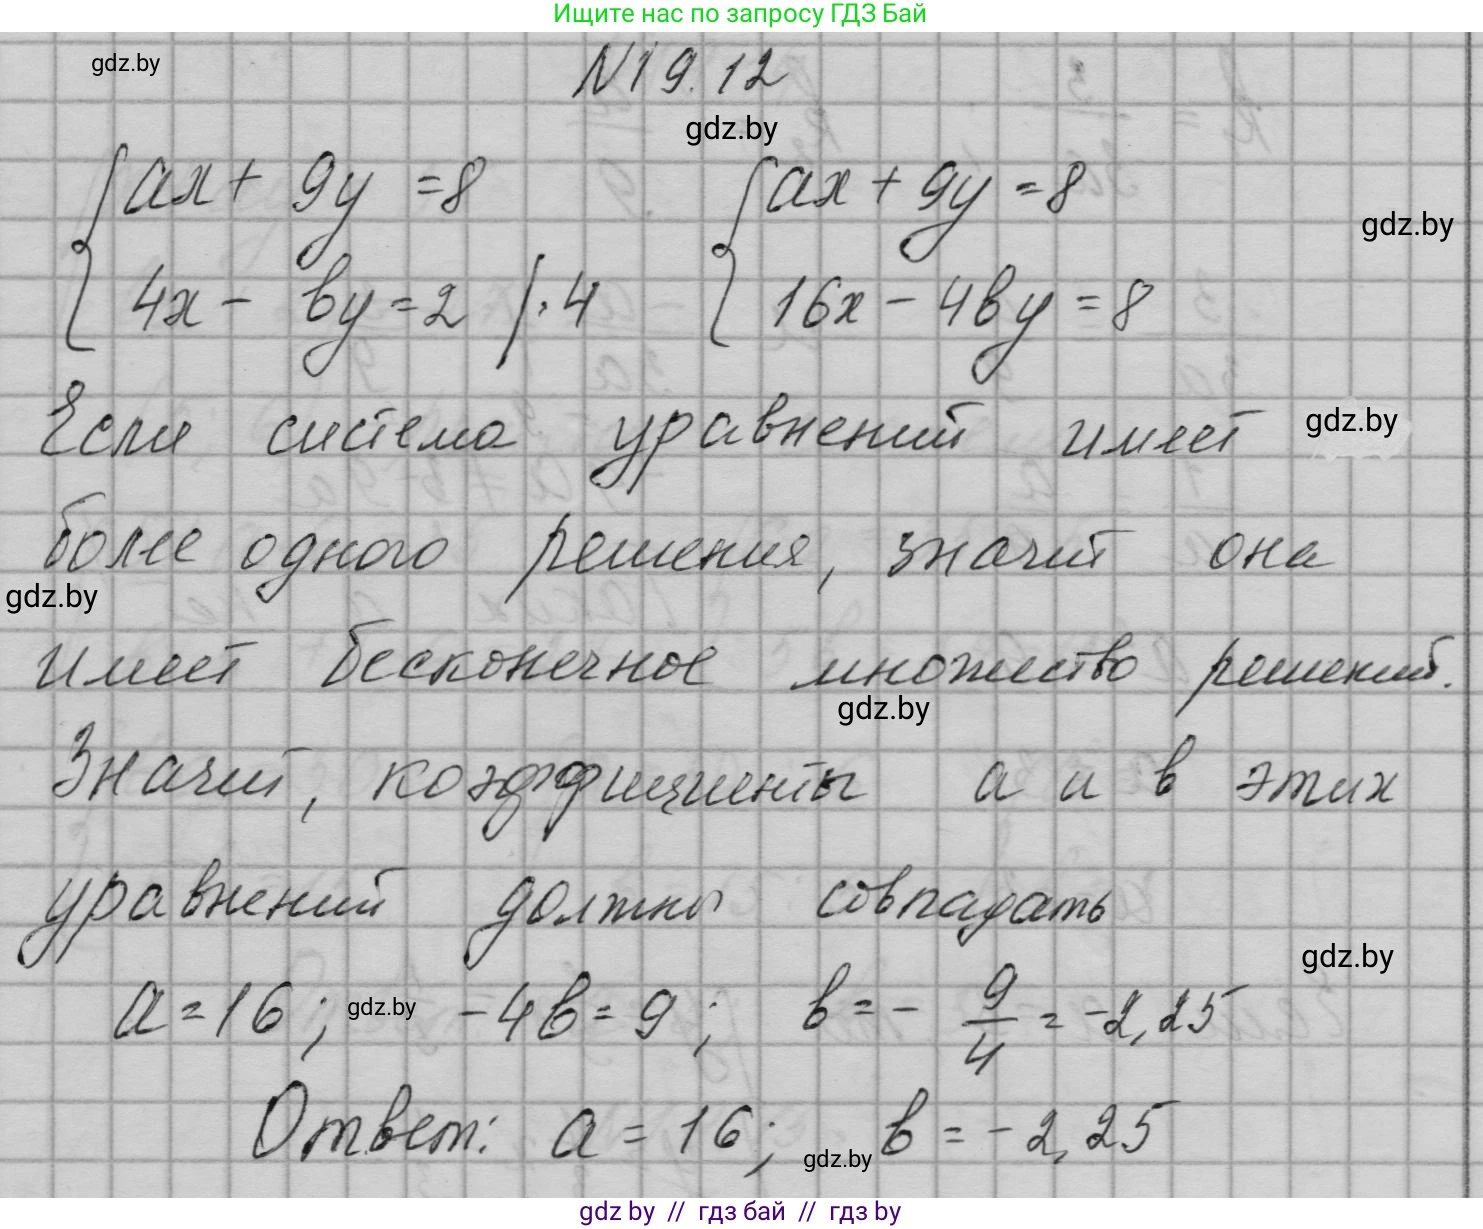 Ищите нас по запросу ГДЗ Бай
gdz.by
N19.12
gdz.by
{ax + 9y = 8 {ax + 9y = 8
gdz.by
{4x - by = 2 | · 4 {16x - 4by = 8
Если система уравнений имеет
gdz.by
более одного решения, значит она
gdz.by
имеет бесконечное множество решений.
gdz.by
Значит, коэффициенты а и в этих
уравнений должны совпадать
gdz.by
a = 16; gdz.by -4b = 9; b = - 9/4 = -2,25
Ответ: a = 16; b = -2,25
gdz.by
gdz by // гдз бай // гдз by